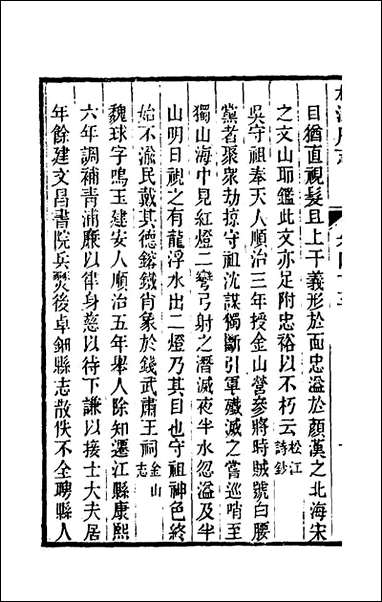 目猶直視髮且上干義形於面忠溢於顏漢之北海宋
之文山耶鑑此文亦足附忠裕以不朽云松江詩鈔
吳守祖奉天人順治三年授金山營參將時賊號白腰
黨者聚衆劫掠守祖沈謀獨斷引軍殲滅之嘗巡哨至
獨山海中見紅燈二彎弓射之潛滅夜半水忽溢及半
山明日視之有龍浮水出二燈乃其目也守祖神色終
始不渝民戴其德鎔鐵肖象於錢武肅王祠金山志
魏球字鳴玉建安人順治五年舉人除知遷江縣康熙
六年調補青浦廉以律身慈以待下謙以接士大夫居
年餘建文昌書院兵燹後卓鈿縣志散佚不全聘縣人